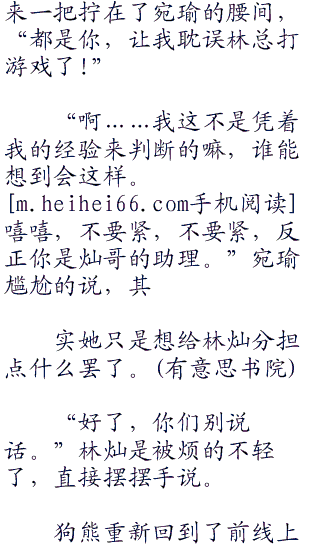 来一把拧在了宛瑜的腰间，
“都是你，让我耽误林总打
游戏了！”
“啊……我这不是凭着
我的经验来判断的嘛，谁能
想到会这样。
[m.heihei66.com手机阅读]
嘻嘻，不要紧，不要紧，反
正你是灿哥的助理。”宛瑜
尴尬的说，其
实她只是想给林灿分担
点什么罢了。(有意思书院)
“好了，你们别说
话。”林灿是被烦的不轻
了，直接摆摆手说。
狗熊重新回到了前线上